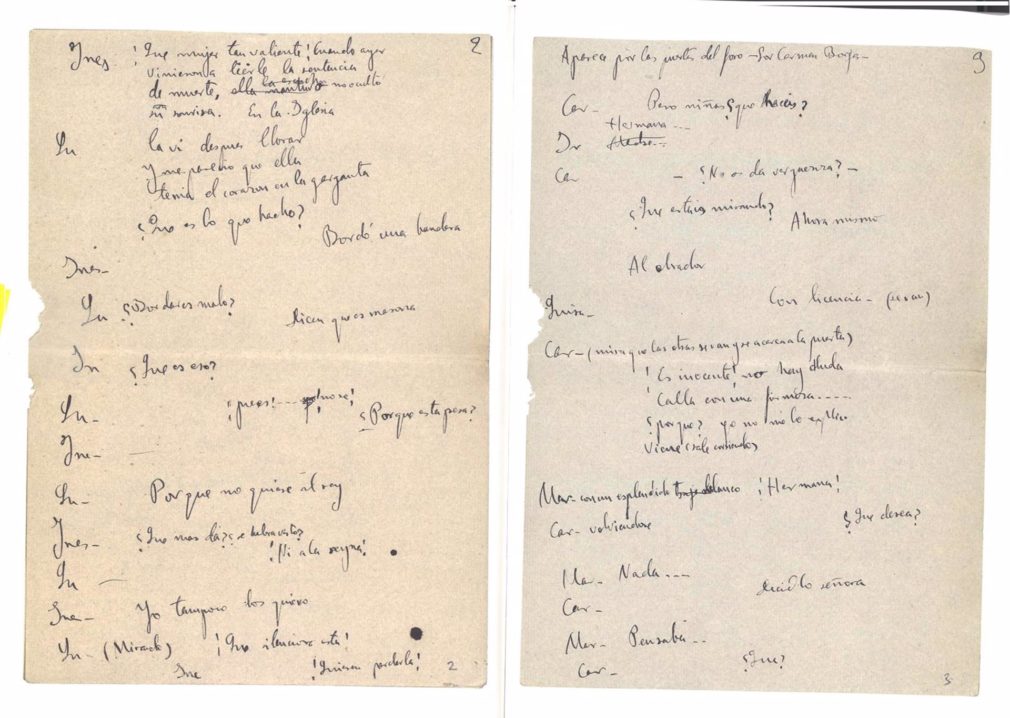 2
Ines - ¡Que mujer tan valiente! Cuando ayer
vinieron a leerle la sentencia
de muerte, ella no oculto
su sonrisa. En la Yglesia
Lu la vi despues llorar
y me parecio que ella
tenia el corazon en la garganta
¿Que es lo que hacho?
Bordó una bandera
Ines-
Lu ¿Bordar es malo?
dicen que es masona
In ¿Que es eso?
Lu- ¡pues!----
¿Porque esta presa?
Ine-
Lu- Porque no quiere al rey
Ines- ¿Que mas da? ¿se habra visto?
¡Ni a la reyna!
Lu —
Ine- Yo tampoco los quiero
Lu-(Mirando) ¡Que silenciosa esta!
Ine ¡Quieren perderla!
2
3
Aparece por las puertas del foro - Sor Carmen Borja-
Car- Pero niñas ¿que haceis?
Hermana...
In
Car - ¿No os da verguenza? -
¿Que estais mirando?
Ahora mismo
Al obrador
Luisa- Con licencia - (se van)
Car-(mira que las otras se van y se acerca a la puerta)
¡Es inocente! no hay duda
¡Calla con una firmeza....
¿porque? yo no me lo explico
Viene
Mar-con un esplendido traje blanco ¡Hermana!
Car- volviendose
¿Que desea?
Mar- Nada...
Car- decidlo señora
Mar- Pensaba..
Car- ¿Que?
3